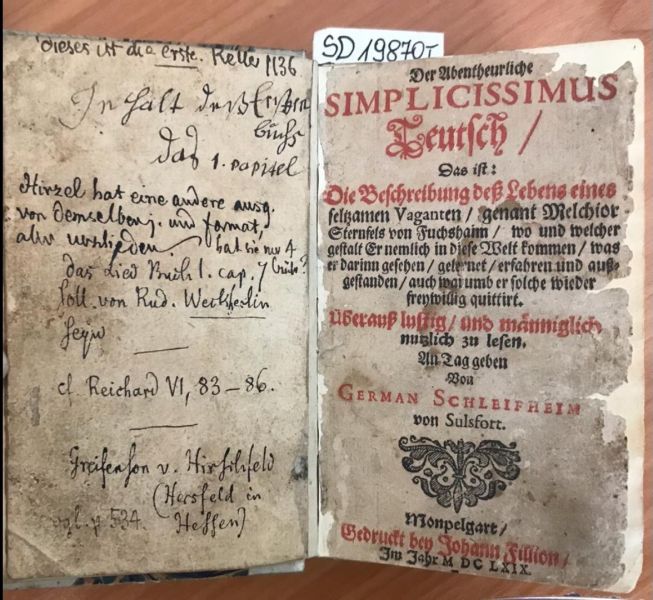 dieses ist die erste. Keller 1136
Inhalt deß Ersten
buchs
das 1. capitel
Hirzel hat eine andere ausg.
von demselben j. und format,
aber verschieden. hat sie nur 4
das Lied Buch 1. cap. 7
soll von Rud. Weckherlin
seyn
cf. Reichard VI, 83-86.
Greifenson v. Hirschfeld
(Hersfeld in
vgl. p. 534. Hessen)
SD 19870
Der Abentheurliche
SIMPLICISSIMUS
Teutsch /
Das ist:
Die Beschreibung deß Lebens eines
seltzamen Vaganten / genant Melchior
Sternfels von Fuchshaim / wo und welcher
gestalt Er nemlich in diese Welt kommen / was
er darinn gesehen / gelernet / erfahren und auß-
gestanden / auch warumb er solche wieder
freywillig quittirt.
Überauß lustig / und männiglich
nutzlich zu lesen.
An Tag geben
Von
GERMAN SCHLEIFHEIM
von Sulsfort.
Monpelgart /
Gedruckt bey Johann Fillion /
Im Jahr M DC LXIX.